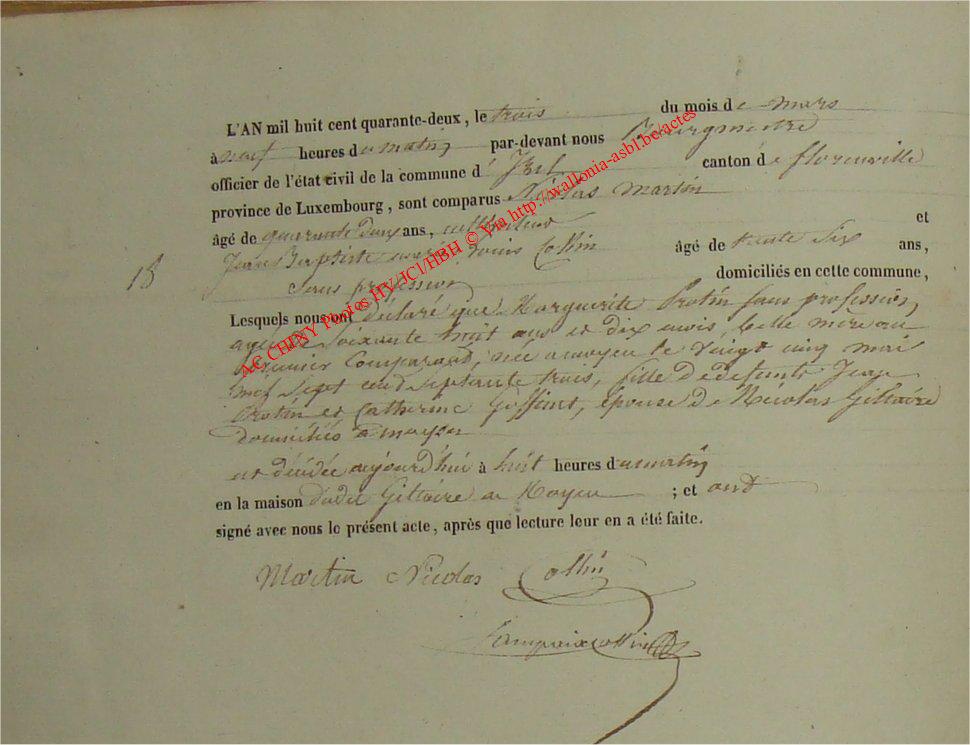 L'AN mil huit cent quarante-deux, le trois du mois de mars
à neuf heures du matin, par-devant nous Bourgmestre
officier de l'état civil de la commune d' Izel canton de florenville
province de Luxembourg, sont comparus Nicolas Martin
âgé de quarante deux ans, cultivateur et
Jean Baptiste Louis Collin âgé de trente six ans,
18
sans profession domiciliés en cette commune,
Lesquels nous ont déclaré que Marguerite Protin sans profession,
agée de soixante huit ans et dix mois, belle mère au
premier Comparant, née a moyen le vingt cinq mai
mil sept cent septante trois, fille de defunts Jean
Protin et Catherine Goffinet, épouse de Nicolas Giltaire
domiciliés a moyen
est décédée aujourd'hui à huit heures du matin,
en la maison dudit Giltaire a Moyen ; et ont
signé avec nous le présent acte, après que lecture leur en a été faite.
Martin Nicolas Collin
AC CHINY Photos HY/JC1/HBH © Via http://wallonia-asbl.be/actes